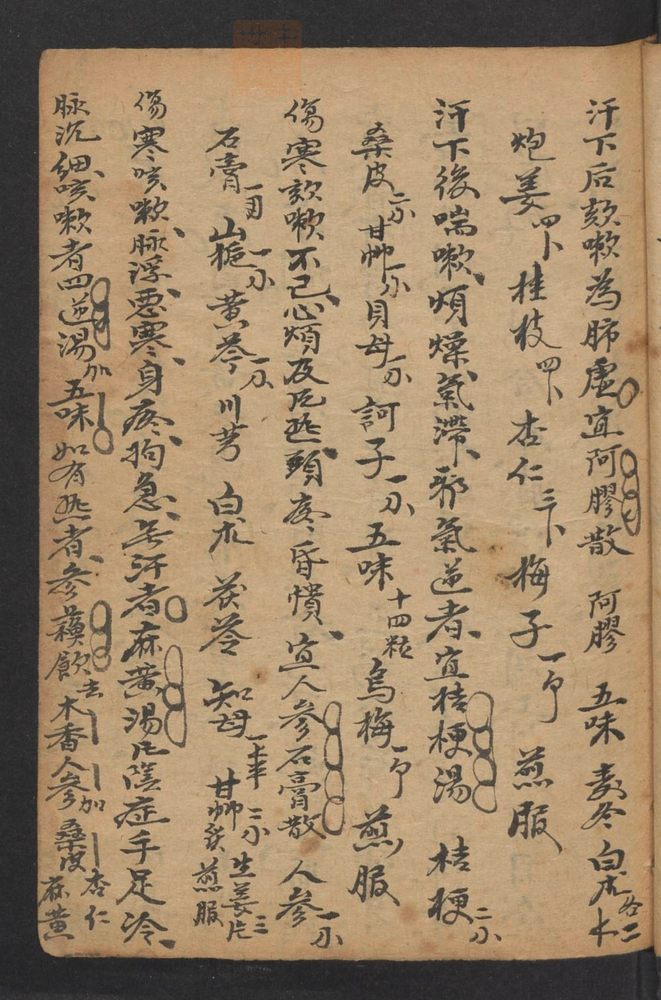 汗下后咳嗽為肺虛宜阿膠散 阿膠 五味 麦冬 白朮各二卜
炮姜四卜 桂枝四卜 杏仁三卜 梅子一个 煎服
汗下後喘嗽煩燥氣滯邪氣逆者宜桔梗湯 桔梗二分
桑皮二分 甘艸一分 貝母一分 訶子一分 五味十四粒 烏梅一个 煎服
傷寒欬嗽不已心煩及凡热頭疼昏憒宜人參石膏散 人參一分
石膏一 山梔一分 黄芩一分 川芎 白朮 茯苓 知母一半 甘艸二分 生姜三片 煎服
傷寒咳嗽脉浮惡寒身疼拘急无汗者麻黄湯凡陰症手足冷
脉沉細咳嗽者四逆湯加五味如有热者參蘓飲去木香人參加桑皮杏仁麻黄